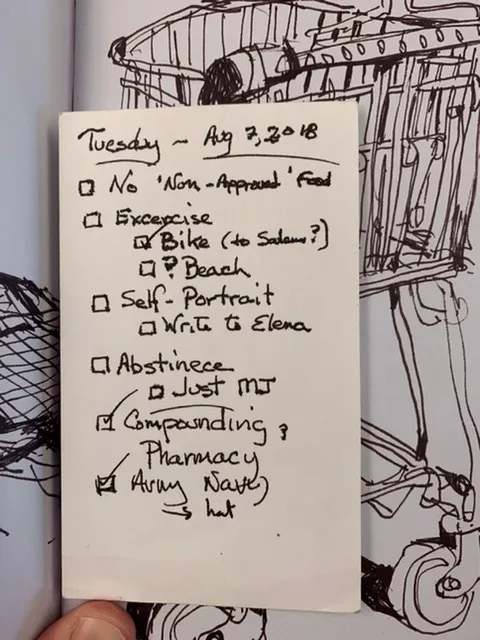 Tuesday ~ Aug 7, 2018
☐ No 'Non-Approved' Food
☐ Excercise
☑ Bike (to Salem?)
☐ ? Beach
☐ Self-Portrait
☐ Write to Elena
☐ Abstinece
☐ Just MJ
☑ Compounding ?
Pharmacy
☑ Army Navy
→ hat